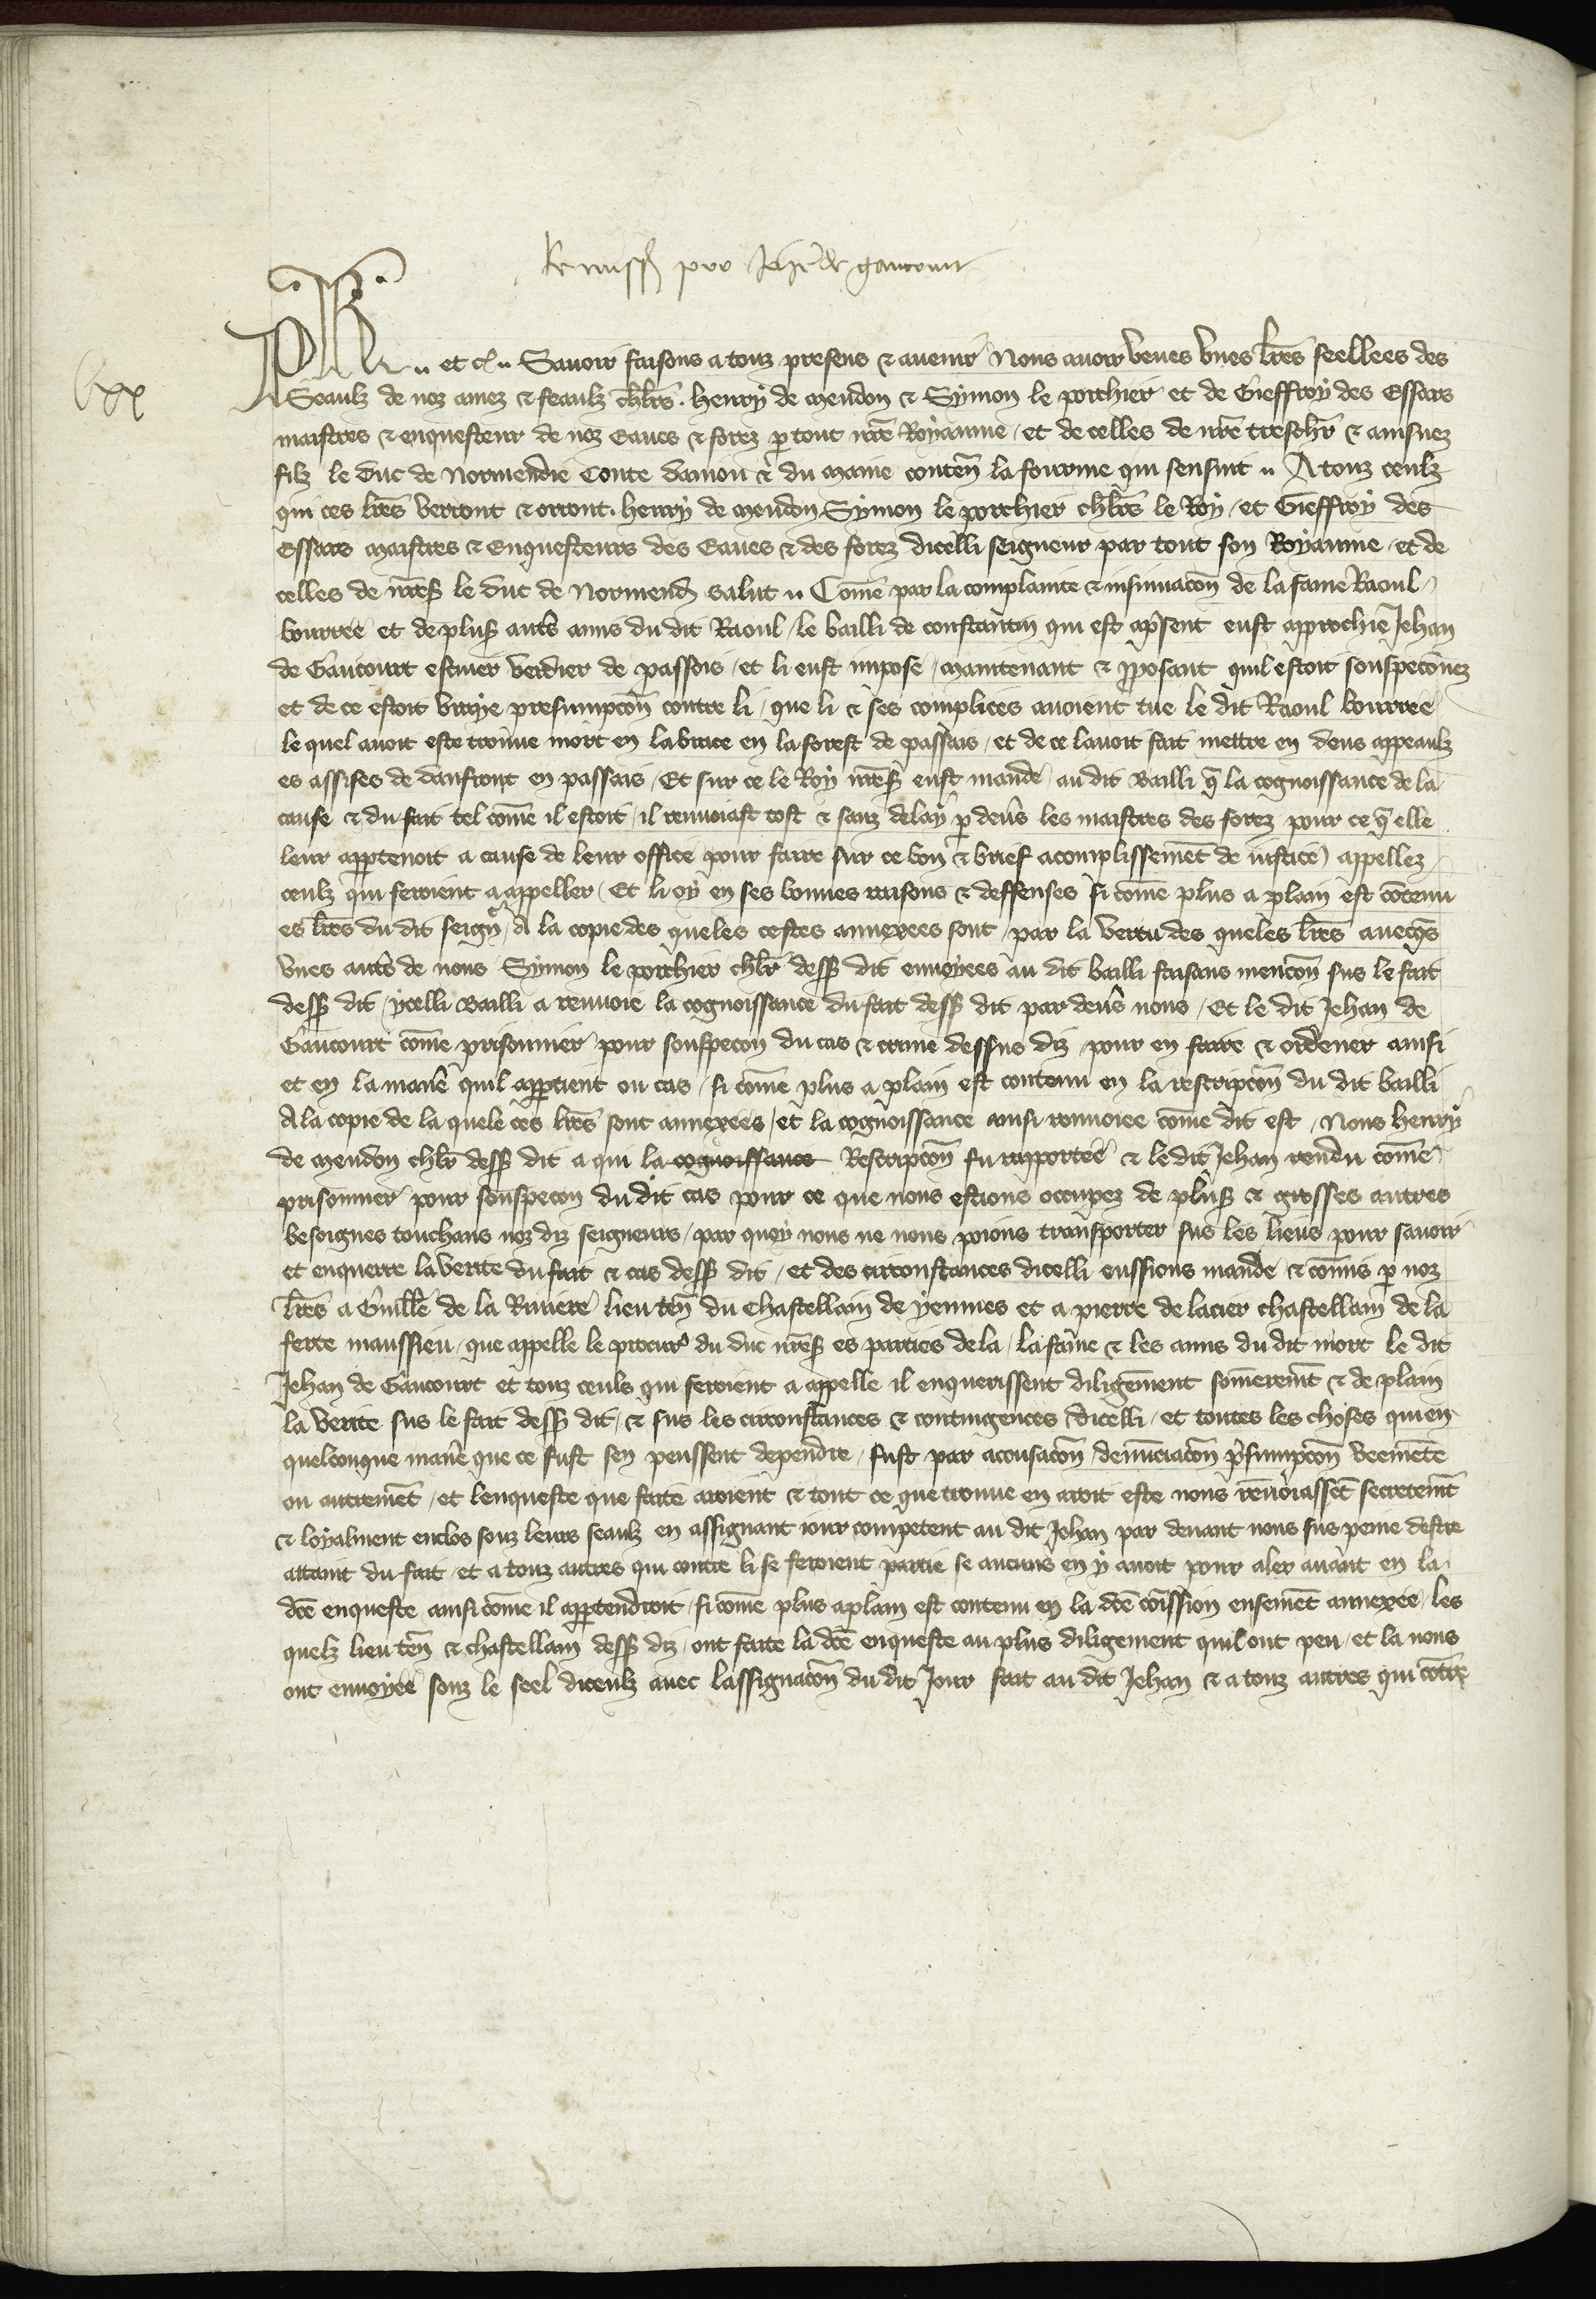 Remiss pro Jehe de gaucourt
lxx
Ph̅e .. et c̅ .. Savoir faisons a touz presens & avenir Nous avoir veues unes lr̅es seellees des
Seaulz de noz amez & feaulz chlr̅s . Henry de Meudon & Symon le porchier et de Gieffroy des Essars
maistres & enquesteur de noz Eaues & forez p̱ tout nr̅e Royaume / et de celles de nr̅e treschr̅ & ainsnez
filz le Duc de Normendie Conte Danjou & du Maine conten̅ la fourme qui sensuit .. A touz ceulz
qui ces lr̅es verront & orront . Henry de Meudon Symon le porchier chlr̅s le Roy / et Gieffroy des
Essars Maistres & Enquesteurs des Eaues & des forez dicelli seigneur par tout son Royaume / et de
celles de nr̅es̅ le Duc de Normend̅ salut .. Com̅e par la complainte & insinuac̅on de la fame Raoul
bourree et de plus̅ aut̅s amis du dit Raoul / le bailli de constantin qui est a p̅sent eust approchie Jehan
de Gaucourt escuier verdier de passois / et li eust impose / maintenant & p̱posant quil estoit souspeconnez
et de ce estoit vraye presumpc̅on contre li / que li & ses complices avoient tue le dit Raoul bourree
le quel avoit este trouve mort en la brace en la forest de passais / et de ce lavoit fait mettre en deus appeaulz
es assises de danfront en passais / Et sur ce le Roy nr̅es̅ eust mande / au dit Bailli q̅ la cognoissance de la
cause & du fait tel com̅e il estoit / il renvoiast tost & sanz delay p̱ dev̅s les maistres des forez pour ce q̅ elle
leur app̱tenoit a cause de leur office / pour faire sur ce bon & brief acomplissem̅et de justice) appellez
ceulz qui seroient a appeller / Et li oy en ses bonnes raisons & deffenses si com̅e plus a plain est co̅tenu
es lr̅es du dit seign̅r / A la copie des queles cestes annexees sont / par la vertu des queles lr̅es avecq̅s
unes aut̅s de nous Symon le porchier chlr̅ dess̅ dit envoyees au dit bailli faisans menc̅on sus le fait
dess̅ dit / ycelli Bailli a renvoie la cognoissance du fait dess̅ dit par dev̅s nous / Et le dit Jehan de
Gaucourt com̅e prisonnier pour souspecon du cas & crime dessus diz pour en faire & ordener ainsi
et en la manie̅ quil app̱tient ou cas / si com̅e plus a plain est contenu en la rescripc̅on du dit bailli
A la copie de la quele ces lr̅es sont annexees / et la cognoissance ainsi renvoiee com̅e dit est / Nous Henry
de Meudon chlr̅ dess̅ dit a qui la cognoissance Rescripc̅on fu rapportee & le dit Jehan rendu com̅e
prisonnier pour souspecon du dit cas pour ce que nous estions occupez de plus̅ & grosses autres
besoignes touchans noz diz seigneurs / par quoy nous ne nous poions transporter sus les lieus pour savoir
et enquerre la verite du fait & cas dess̅ dit / et des circonstances dicelli eussions mande & com̅is p̱ noz
lr̅es a Guille̅ de la Riviere lieuten̅ du Chastellain de yenmes et a pierre de lacier chastellain de la
ferte maussieu / que appelle le procur̅ du duc nr̅es̅ es parties de la / la fame & les amis du dit mort le dit
Jehan de Gaucourt et touz ceuls qui seroient a appelle il enquerissent diligem̅ent som̅erem̅t & de plain
la verite sus le fait dess̅ dit / & sus les circonstances & contingences dicelli / et toutes les choses qui en
quelconque manie̅ que ce fust sen peussent dependre / fust par acusac̅on / denunciac̅on p̅sumpc̅on veem̅ete
ou autrem̅et / et lenqueste que faite aroient & tout ce que trouve en aroit este nous renvoiass̅et secretem̅t
& loyalment enclos souz leurs seaulz en assignant jour competent au dit Jehan par devant nous sus peine destre
attaint du fait / et a touz autres qui contre li se feroient partie se aucuns en y avoit pour aler avant en la
dc̅e enqueste ainsi com̅e il app̱tendroit / si com̅e plus a plain est contenu en la dc̅e co̅ission ensem̅et annexee / les
quelz lieuten̅ & chastellain dess̅ diz / ont faite la dc̅e enqueste au plus diligement quil ont peu / et la nous
ont envoyee souz le seel diceulz avec lassignac̅on du dit Jour fait au dit Jehan & a touz autres qui co̅tre